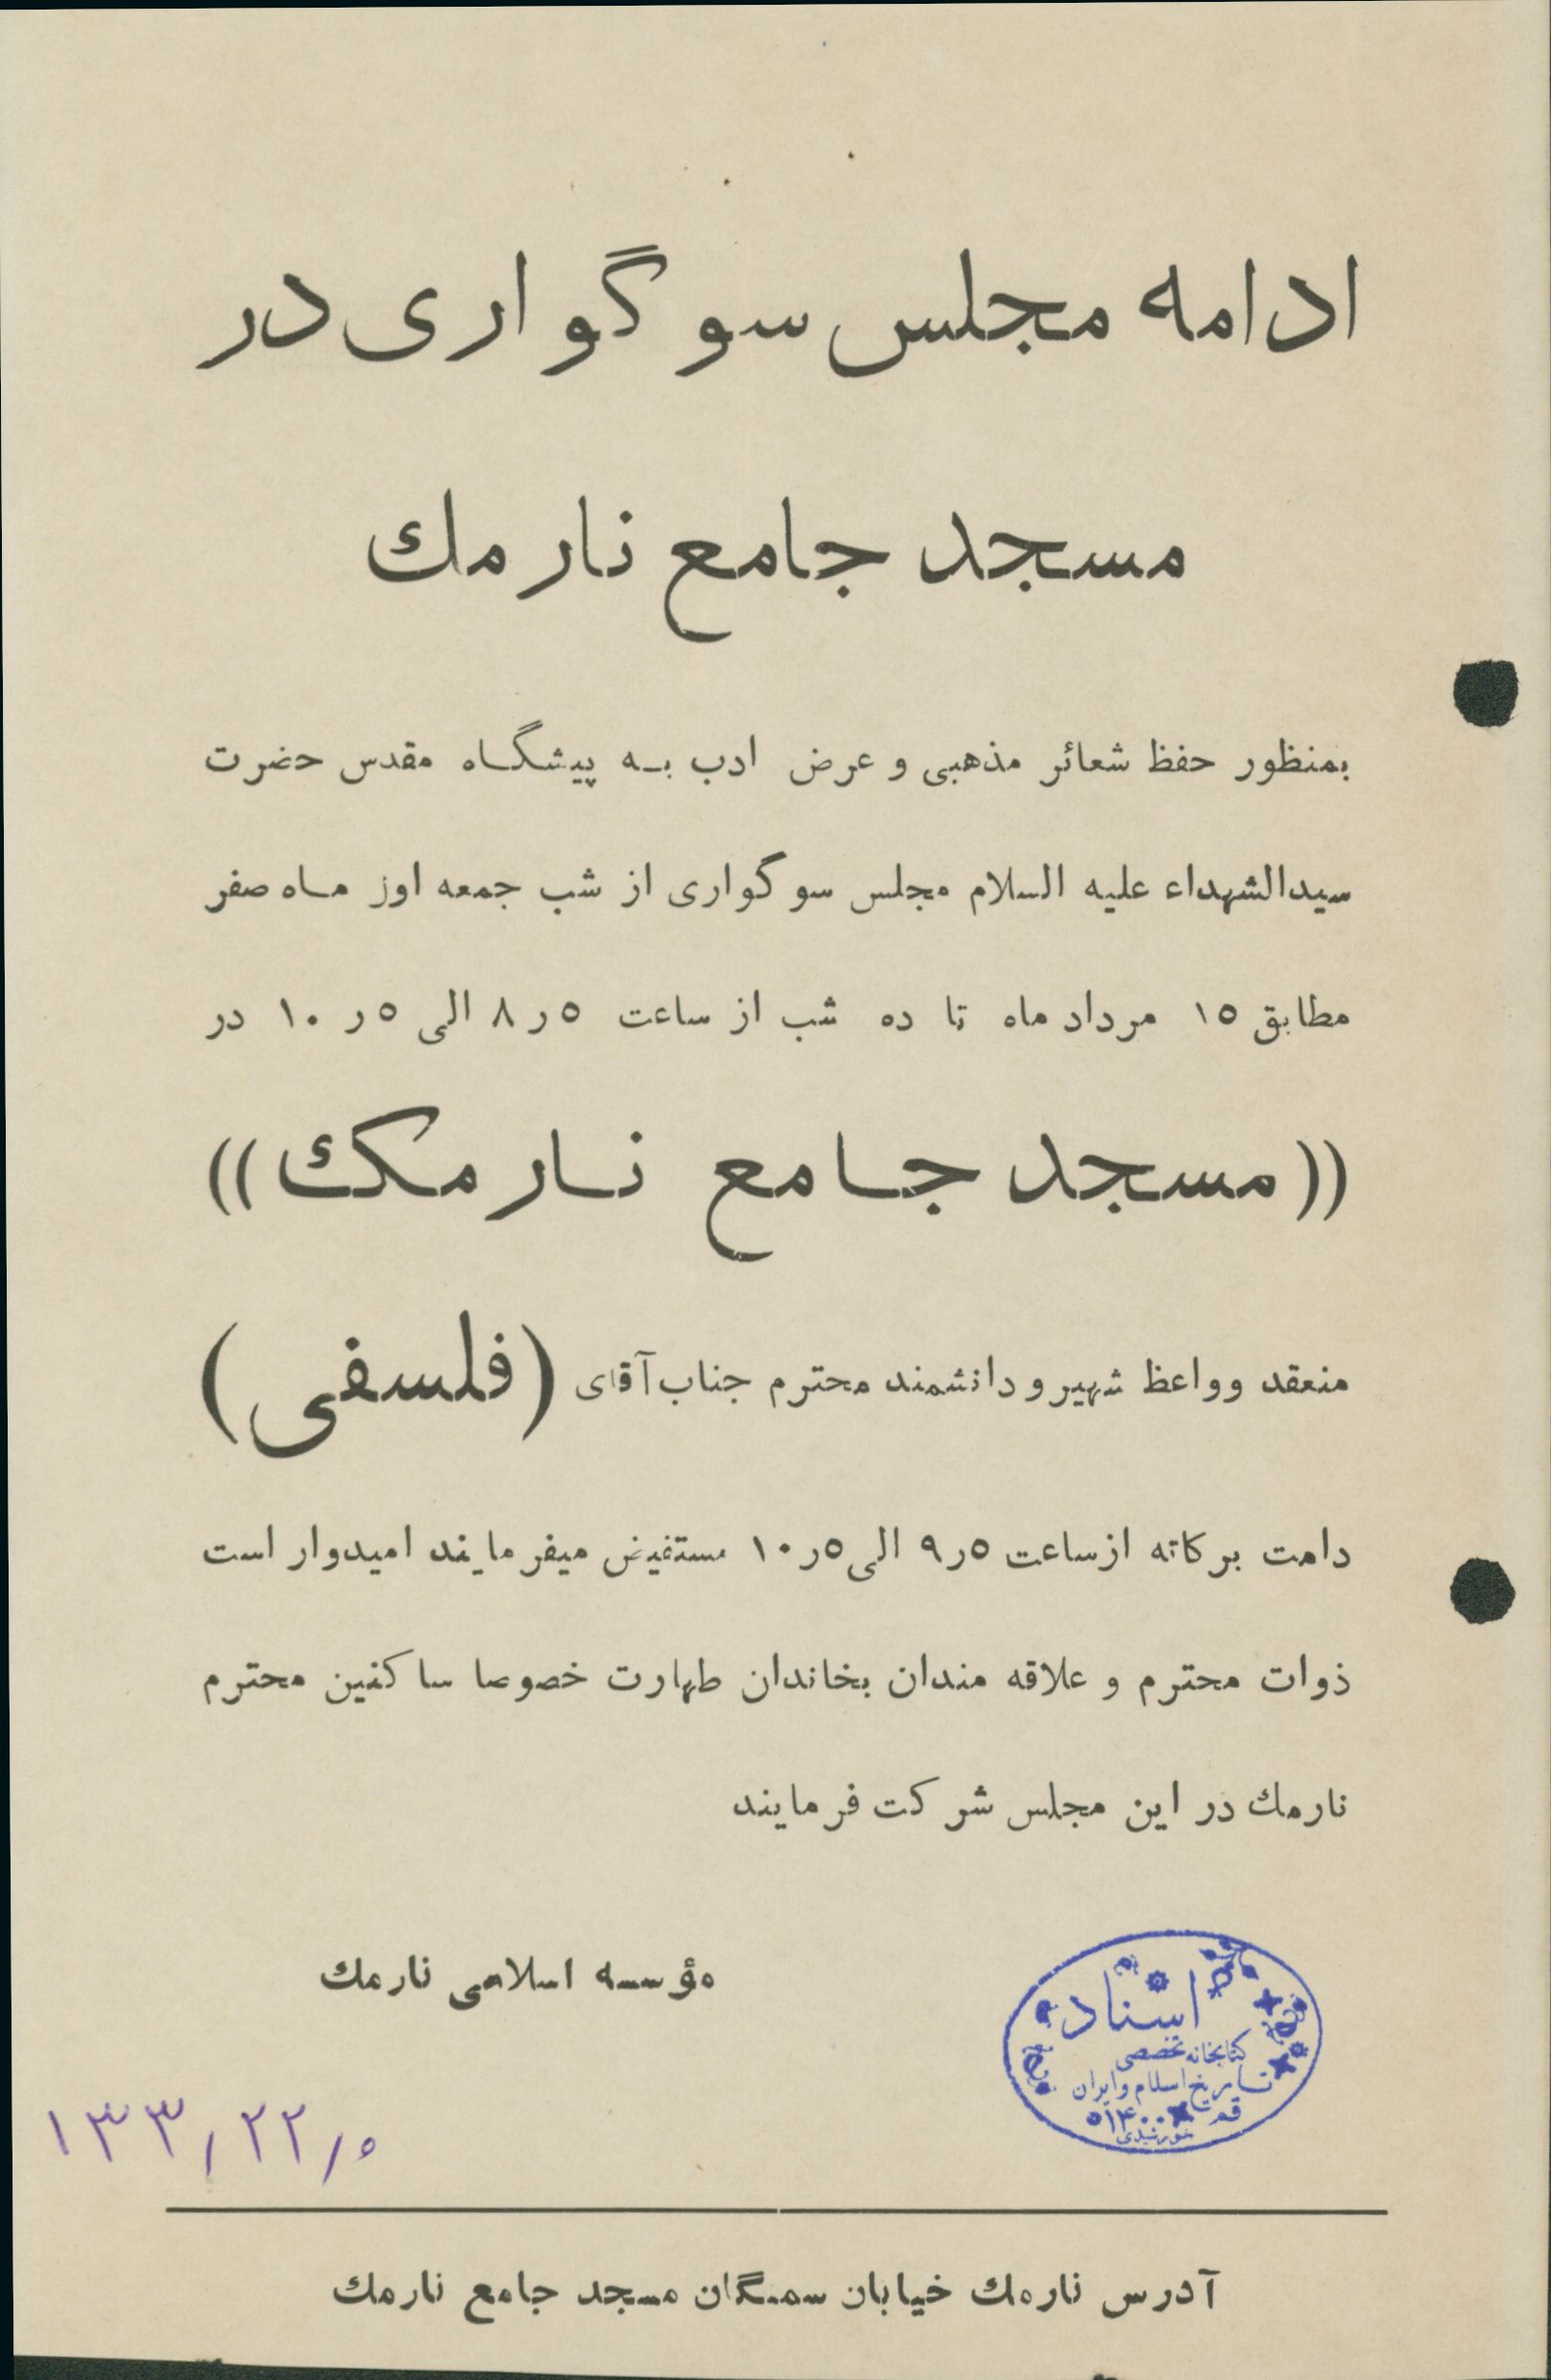 ادامه مجلس سوگواری در
مسجد جامع نارمك
بمنظور حفظ شعائر مذهبی و عرض ادب به پیشگاه مقدس حضرت
سیدالشهداء علیه السلام مجلس سوگواری از شب جمعه اوز ماه صفر
مطابق ۱۵ مرداد ماه تا ده شب از ساعت ۵ر۸ الی ۵ر۱۰ در
((مسجد جامع نارمكك))
منعقد و واعظ شهیر و دانشمند محترم جناب آقای (فلسفی)
دامت برکاته از ساعت ۵ر۹ الی ۵ر۱۰ مستفیض میفرمایند امیدوار است
ذوات محترم و علاقه مندان بخاندان طهارت خصوصا ساکنین محترم
نارمك در این مجلس شرکت فرمایند
مؤسسه اسلامی نارمك
اسناد
کتابخانه تخصصی
تاریخ اسلام و ایران
قم
خورشیدی
۱۳۳٫۲۲٫۰
آدرس نارمك خیابان سمنگان مسجد جامع نارمك